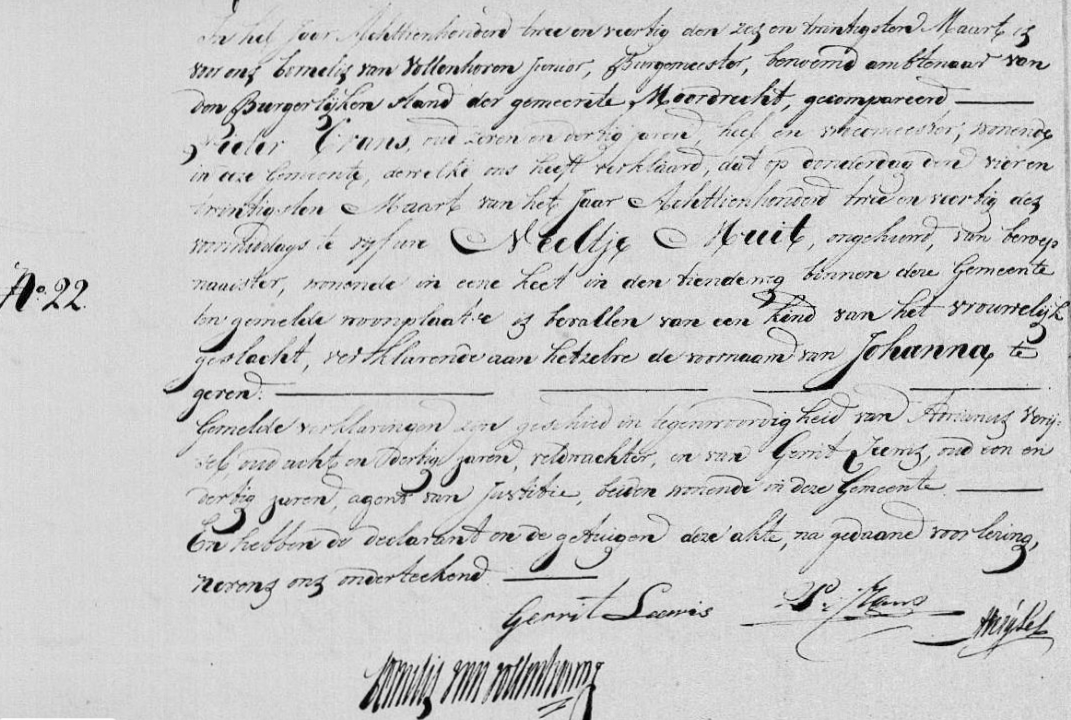 In het Jaar Achttienhonderd twee en veertig den zes en twintigsten Maart is
voor ons Cornelis van Vollenhoven Junior, Burgemeester, benoemd ambtenaar van
den Burgerlijken stand der gemeente Moordrecht, gecompareerd
Pieter Evans, oud zeven en dertig jaren, heel en vroedmeester, wonende
in deze Gemeente, dewelke ons heeft verklaard, dat op donderdag den vier en
twintigsten Maart van het Jaar Achttienhonderd twee en veertig des
voormiddags te vyf ure Neeltje Muit, ongehuwd, van beroep
naaister, wonende in eene keet in den tiendeweg binnen deze Gemeente
No. 22.
ten gemelde woonplaatse is bevallen van een kind van het vrouwelijk
geslacht, verklarende aan hetzelve de voornaam van Johanna, te
geven.
Gemelde verklaringen zyn geschied in tegenwoordigheid van Arianus
oud acht en dertig jaren, veldwachter, en van Gerrit Leewis, oud een en
dertig jaren, agent van Justitie, beiden wonende in deze Gemeente
En hebben de declarant en de getuigen deze akte, na gedaane voorlezing,
nevens ons onderteekend
Gerrit Leewis P. Evans
Cornelis van Vollenhoven